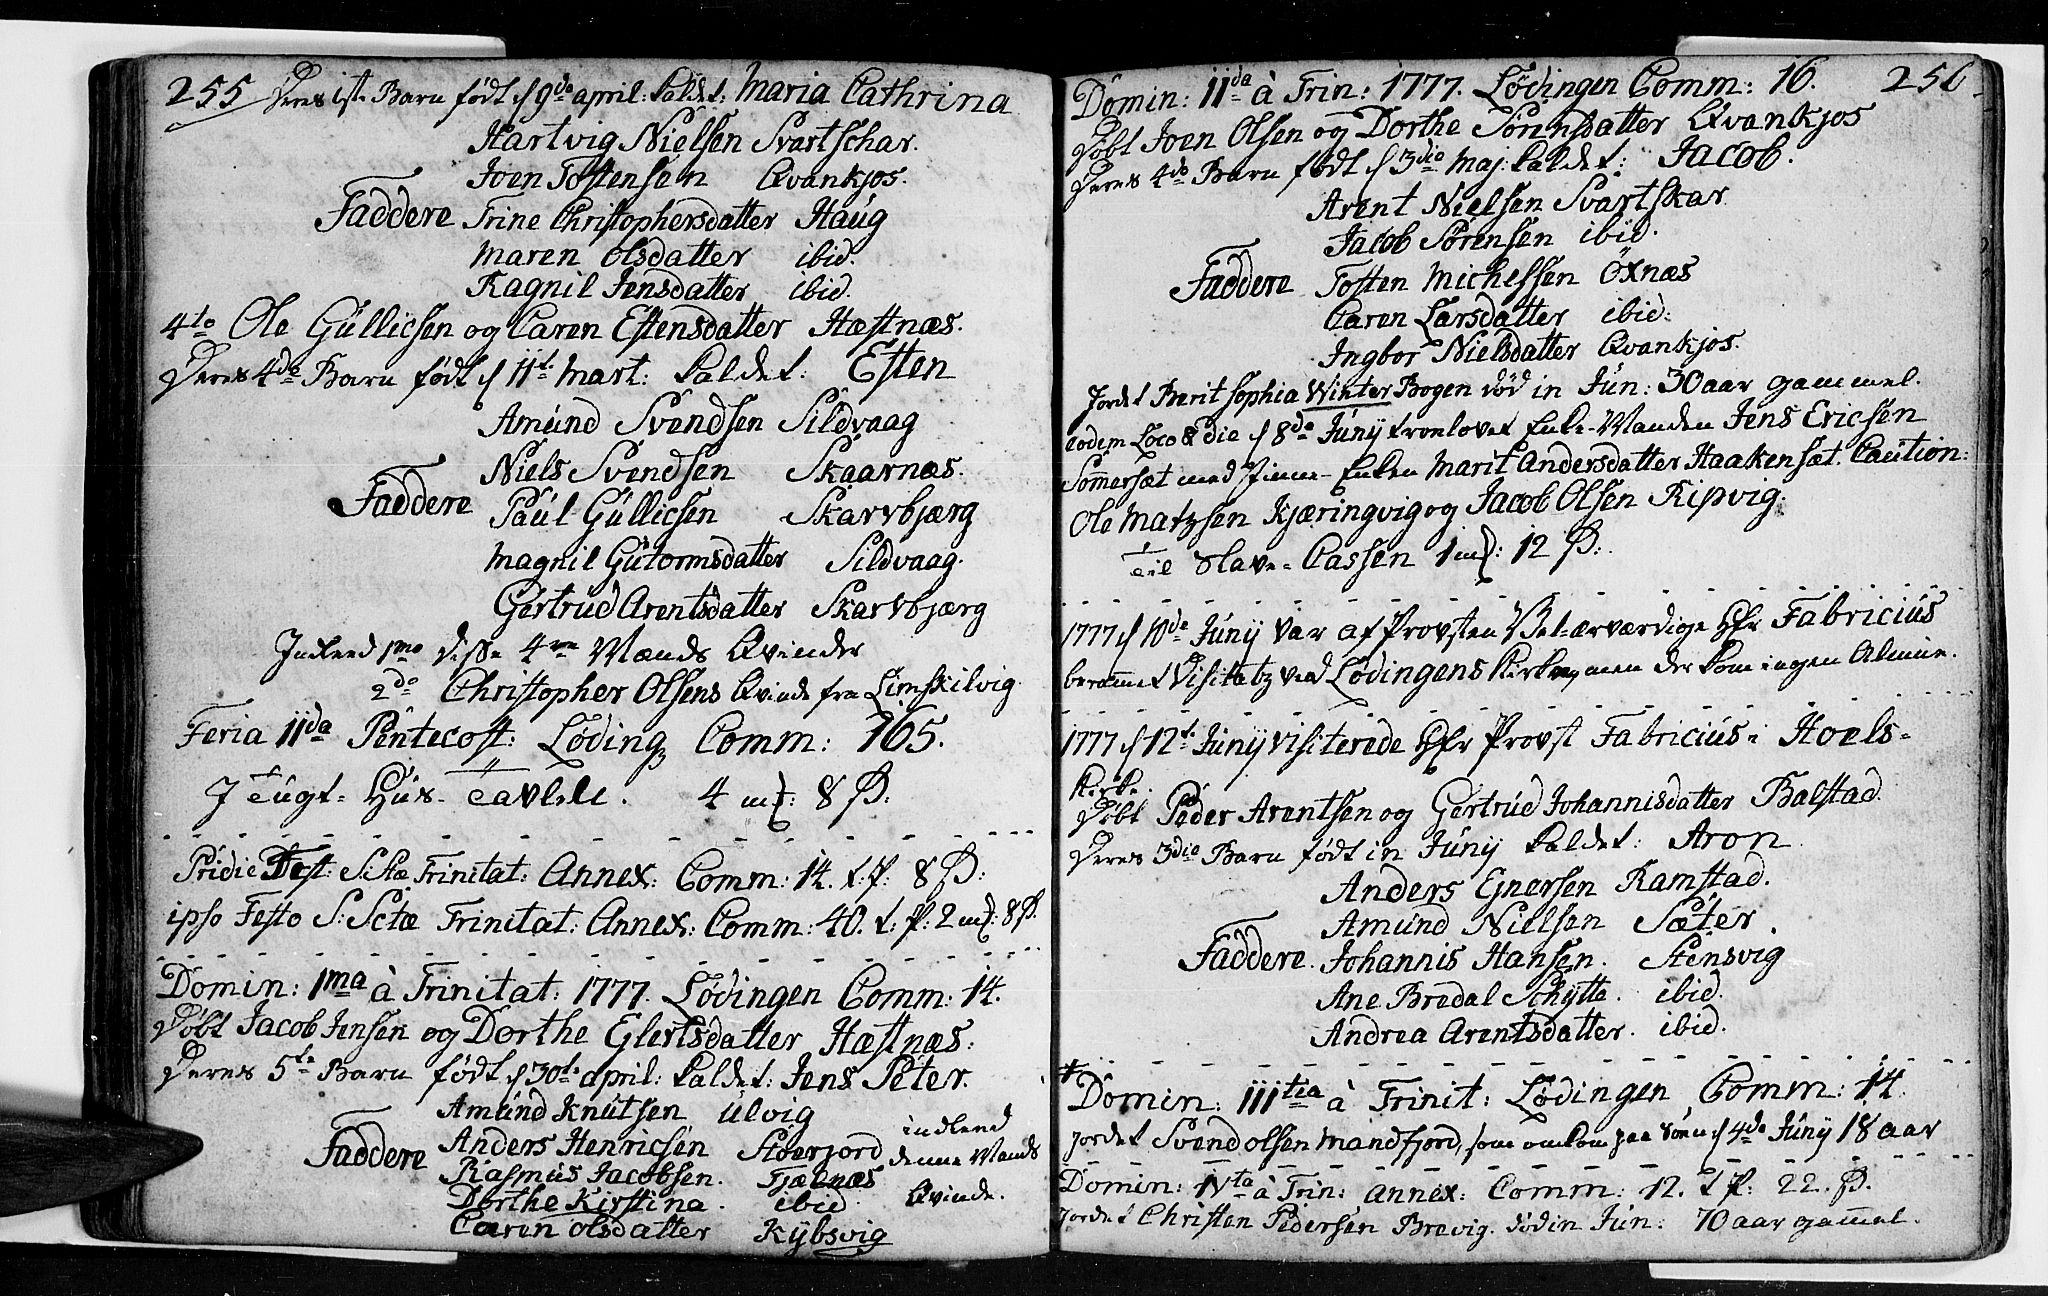 255 Deres 1st Barn født d 9de april: kaldet: Maria Cathrina
Hartvig Nielsen Svartschar.
Joen Tostensen Qvankjos.
Faddere Trine Christophersdatter Haug
Maren Olsdatter ibid.
Ragnil Jensdatter ibid.
4to Ole Gullichsen og Caren Estensdatter Hæstnæs.
Deres 4de Barn født d 11t Mart: kaldet: Esten
Amund Svendsen Sildvaag
Niels Svendsen Skaarnæs.
Faddere Paul Gullichsen Skarvbjærg
Magnil Gutormsdatter Sildvaag.
Gertrud Arentsdatter Skarvbjærg
Indleed 1mo disse 4re Mænds Qvinder
2do Christopher Olsens Qvinde fra Limskilvig.
Feria IIda Pentecost: Løding Comm: 165.
I Tugt-Hus-Tavlele. 4 m: 8 S:
Pridie Fest: SStæ Trinitat: Annex: Comm: 14. t: f: 8 S:
ipso Festo S: Sctæ Trinitat: Annex: Comm: 40. t: f: 2 m: 8 S.
Domin: 1ma à Trinitat: 1777. Lødingen Comm: 14.
Døbt Jacob Jensen og Dorthe Elertsdatter Hæstnæs:
Deres 5te Barn født d 30te april: kaldet: Jens Peter.
Amund Knutsen Ulvig
Faddere Anders Henricsen Stoerjord
Rasmus Jacobsen. Tjælnæs
Dorthe Kirstina. ibid.
Caren Olsdatter Kybsvig
indleed
denne Mands
Qvinde.
Domin: IIda à Trin: 1777. Lødingen Comm: 16. 256
Døbt Joen Olsen og Dorthe Sørensdatter Qvankjos
Deres 4de Barn født d 3die Maj: kaldet: Jacob.
Arent Nielsen Svartskar.
Jacob Sørensen ibid.
Faddere Tosten Michelsen Öxnæs
Caren Larsdatter ibid:
Ingbor Nielsdatter Qvankjos.
Jordet Berit Sophia Winter Bogen død in Jun: 30 aar gammel.
eodem Loco & die d 8de Juny troelovet Enke-Manden Jens Ericsen
Somersæt med Pinne-Enken Marit Andersdatter Haakensæt. Caution:
Ole Matzsen Kjæringvig og Jacob Olsen Ripvig.
Til Slave-Cassen 1 m: 12 S:
1777 d 10de Juny var af Provsten Vel-ærværdige Hr Fabricius
berammet Visitatz ved Lødingens Kirke, men der kom ingen Almue.
1777 d 12t Juny visiterede Hr Provst Fabricius i Hoels-
Kirke.
Døbt Peder Arentsen og Gertrud Johannisdatter Balstad.
Deres 3die Barn født in Juny kaldet: Aron
Anders Ejnersen Ramstad.
Amund Nielsen Sæter.
Faddere. Johannis Hansen. Stensvig
Ane Bredal Schytte. ibid.
Andrea Arentsdatter. ibid.
Domin: IIItia à Trinit: Lødingen Comm: 14.
Jordet Svend Olsen Mandfjord, som omkom paa Søen d 4de Juny 18 aar
Domin: IVta à Trin: Annex: Comm: 12. t f: 22. S.
Jordet Christen Pedersen Brevig. død in Jun: 70 aar gammel.